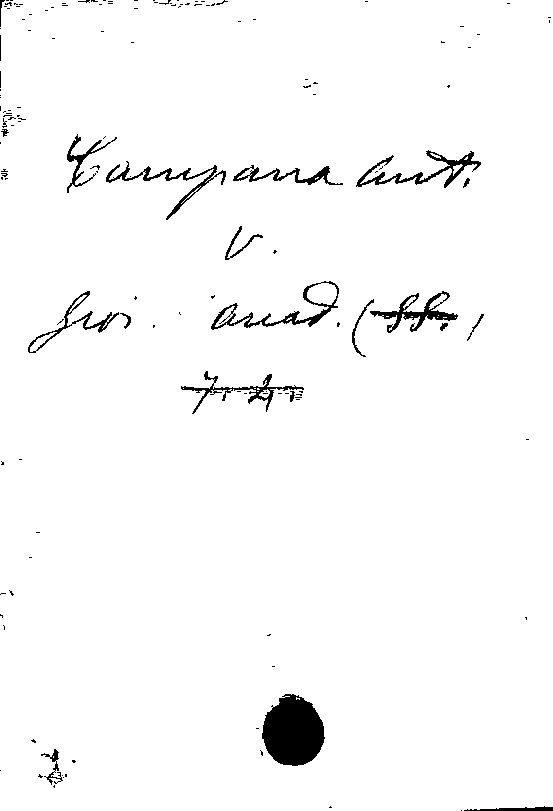 Campana Ant.
V.
Gioi. Acad. (SS.)
7. 2.